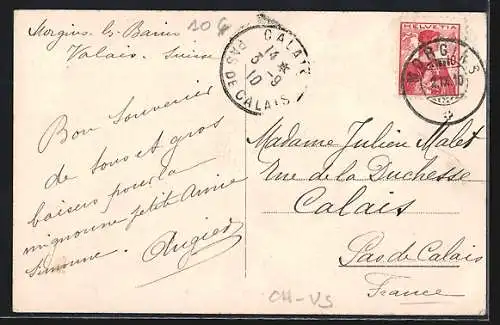 Morgins-les-Bains
Valais. Suisse
10 G
CALAIS
14 * 
3 -9
10
PAS DE CALAIS
HELVETIA
MORGINS
2.IX.10
Bon Souvenir
de tous et gros
baisers pour la
mignonne petite Annie
Simonne.
Madame Julien Malet
Rue de la Duchesse
Calais
Pas de Calais
France
CH-VS